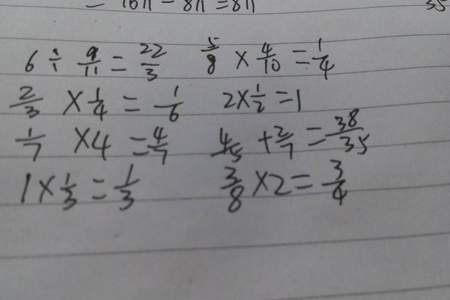 = 16π - 8π = 8π 35
6 ÷ 9/11 = 22/3 5/8 × 4/10 = 1/4
2/3 × 1/4 = 1/6 2 × 1/2 = 1
1/7 × 4 = 4/7 4/5 + 2/7 = 38/35
1 × 1/3 = 1/3 3/8 × 2 = 3/4